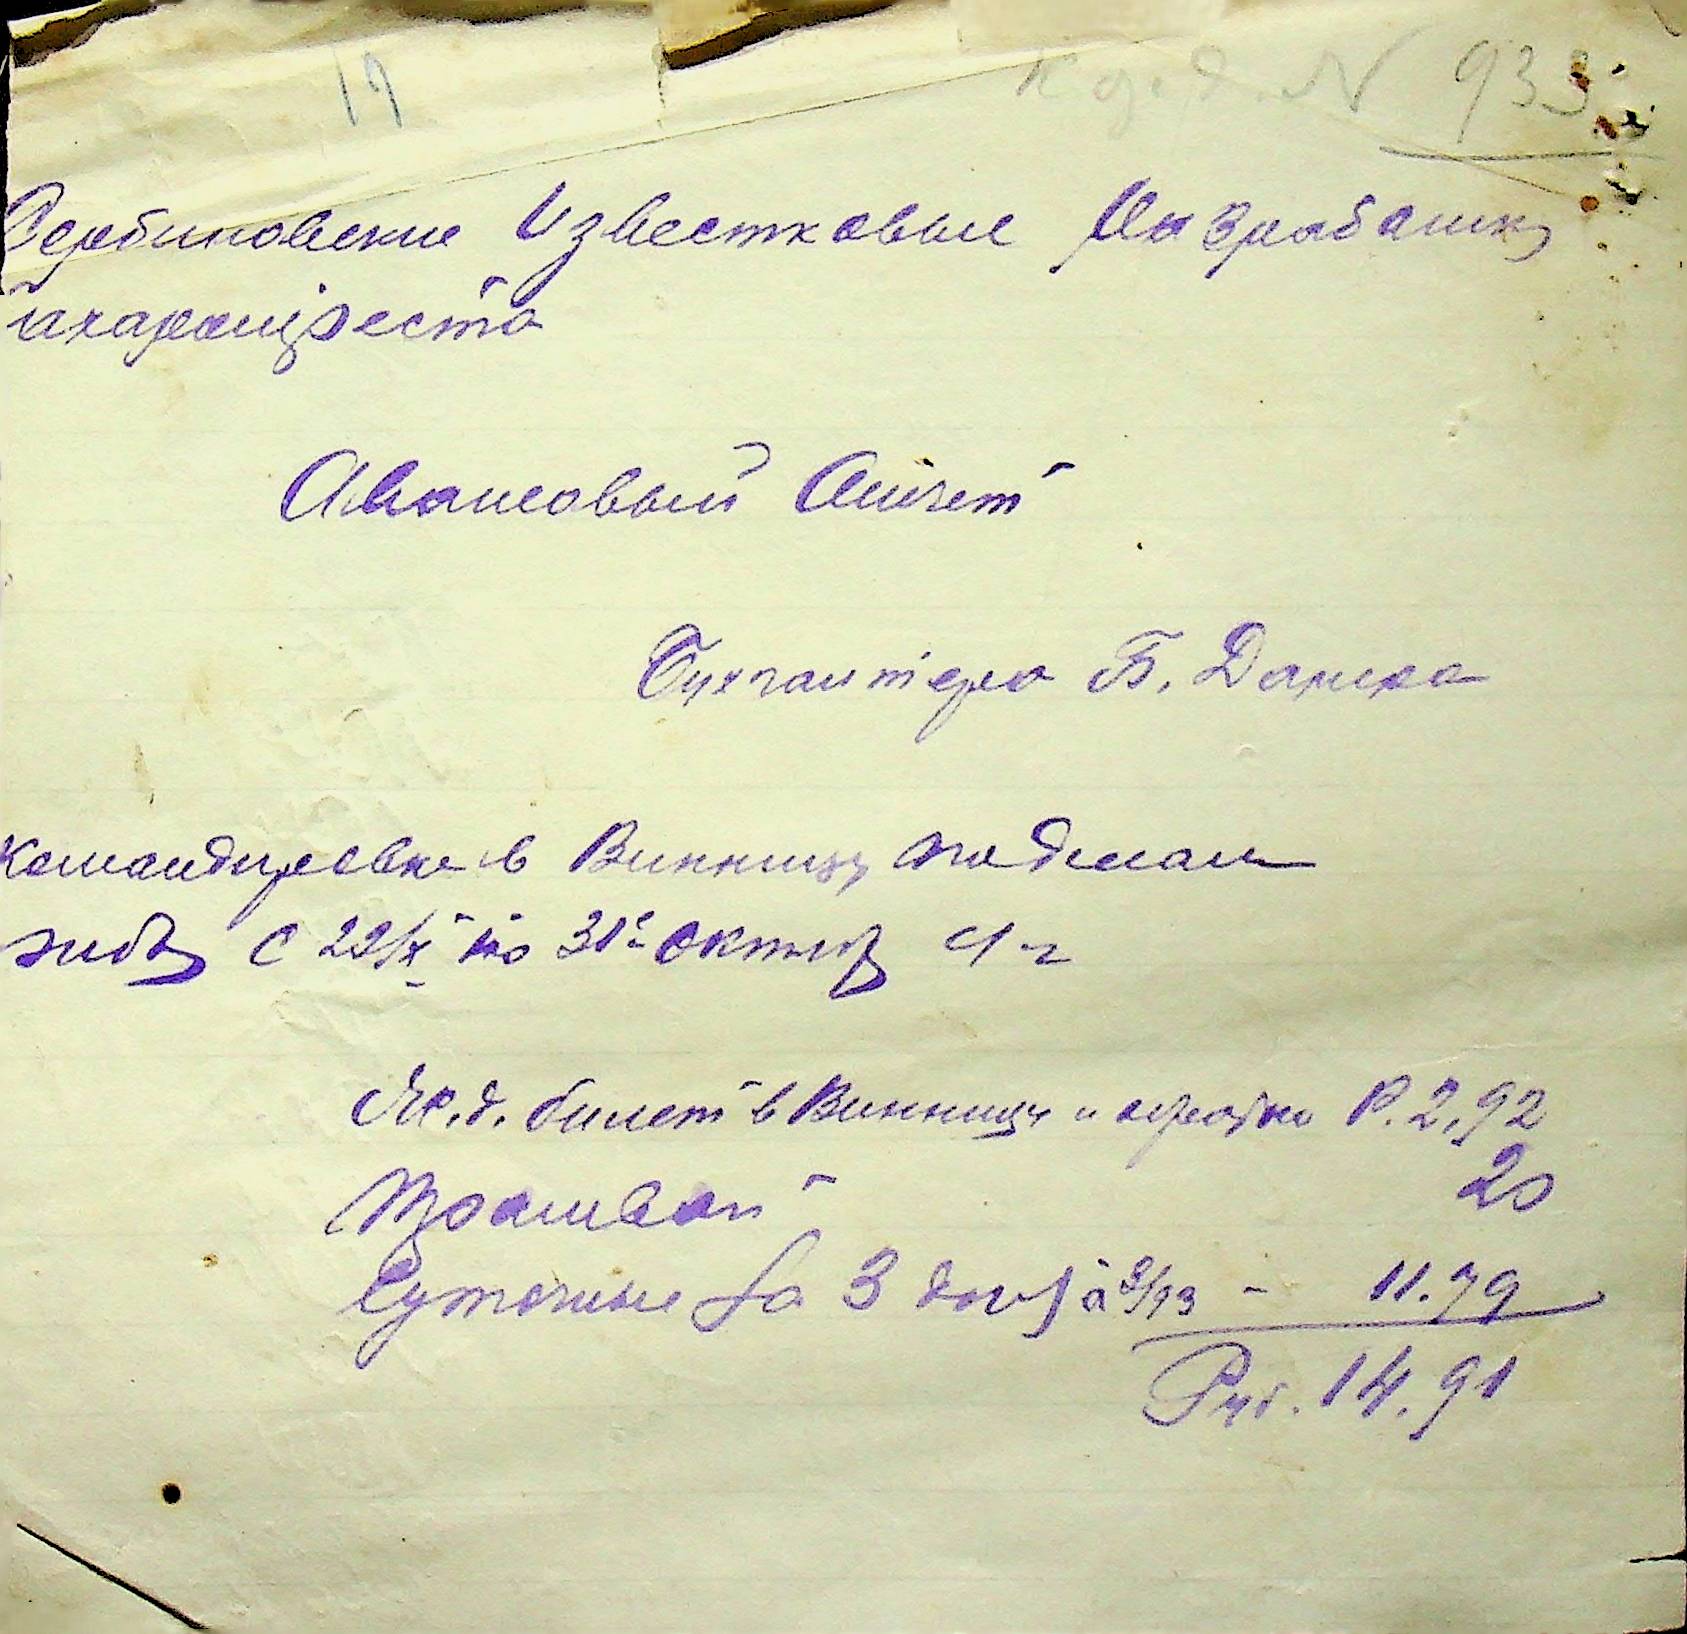 19
К орд. N 933
Сербиновские Известковые Разработки
Сахаротреста
Авансовый Отчет
Бухгалтера Б.
Командировке в Винницу
с 22/X по 31 октяб с/г
Ж.д. билет в Винницу и обратно Р. 2,92
Трамвай 20
Суточные за 3 дня à 3/93 - 11.79
Руб. 14.91